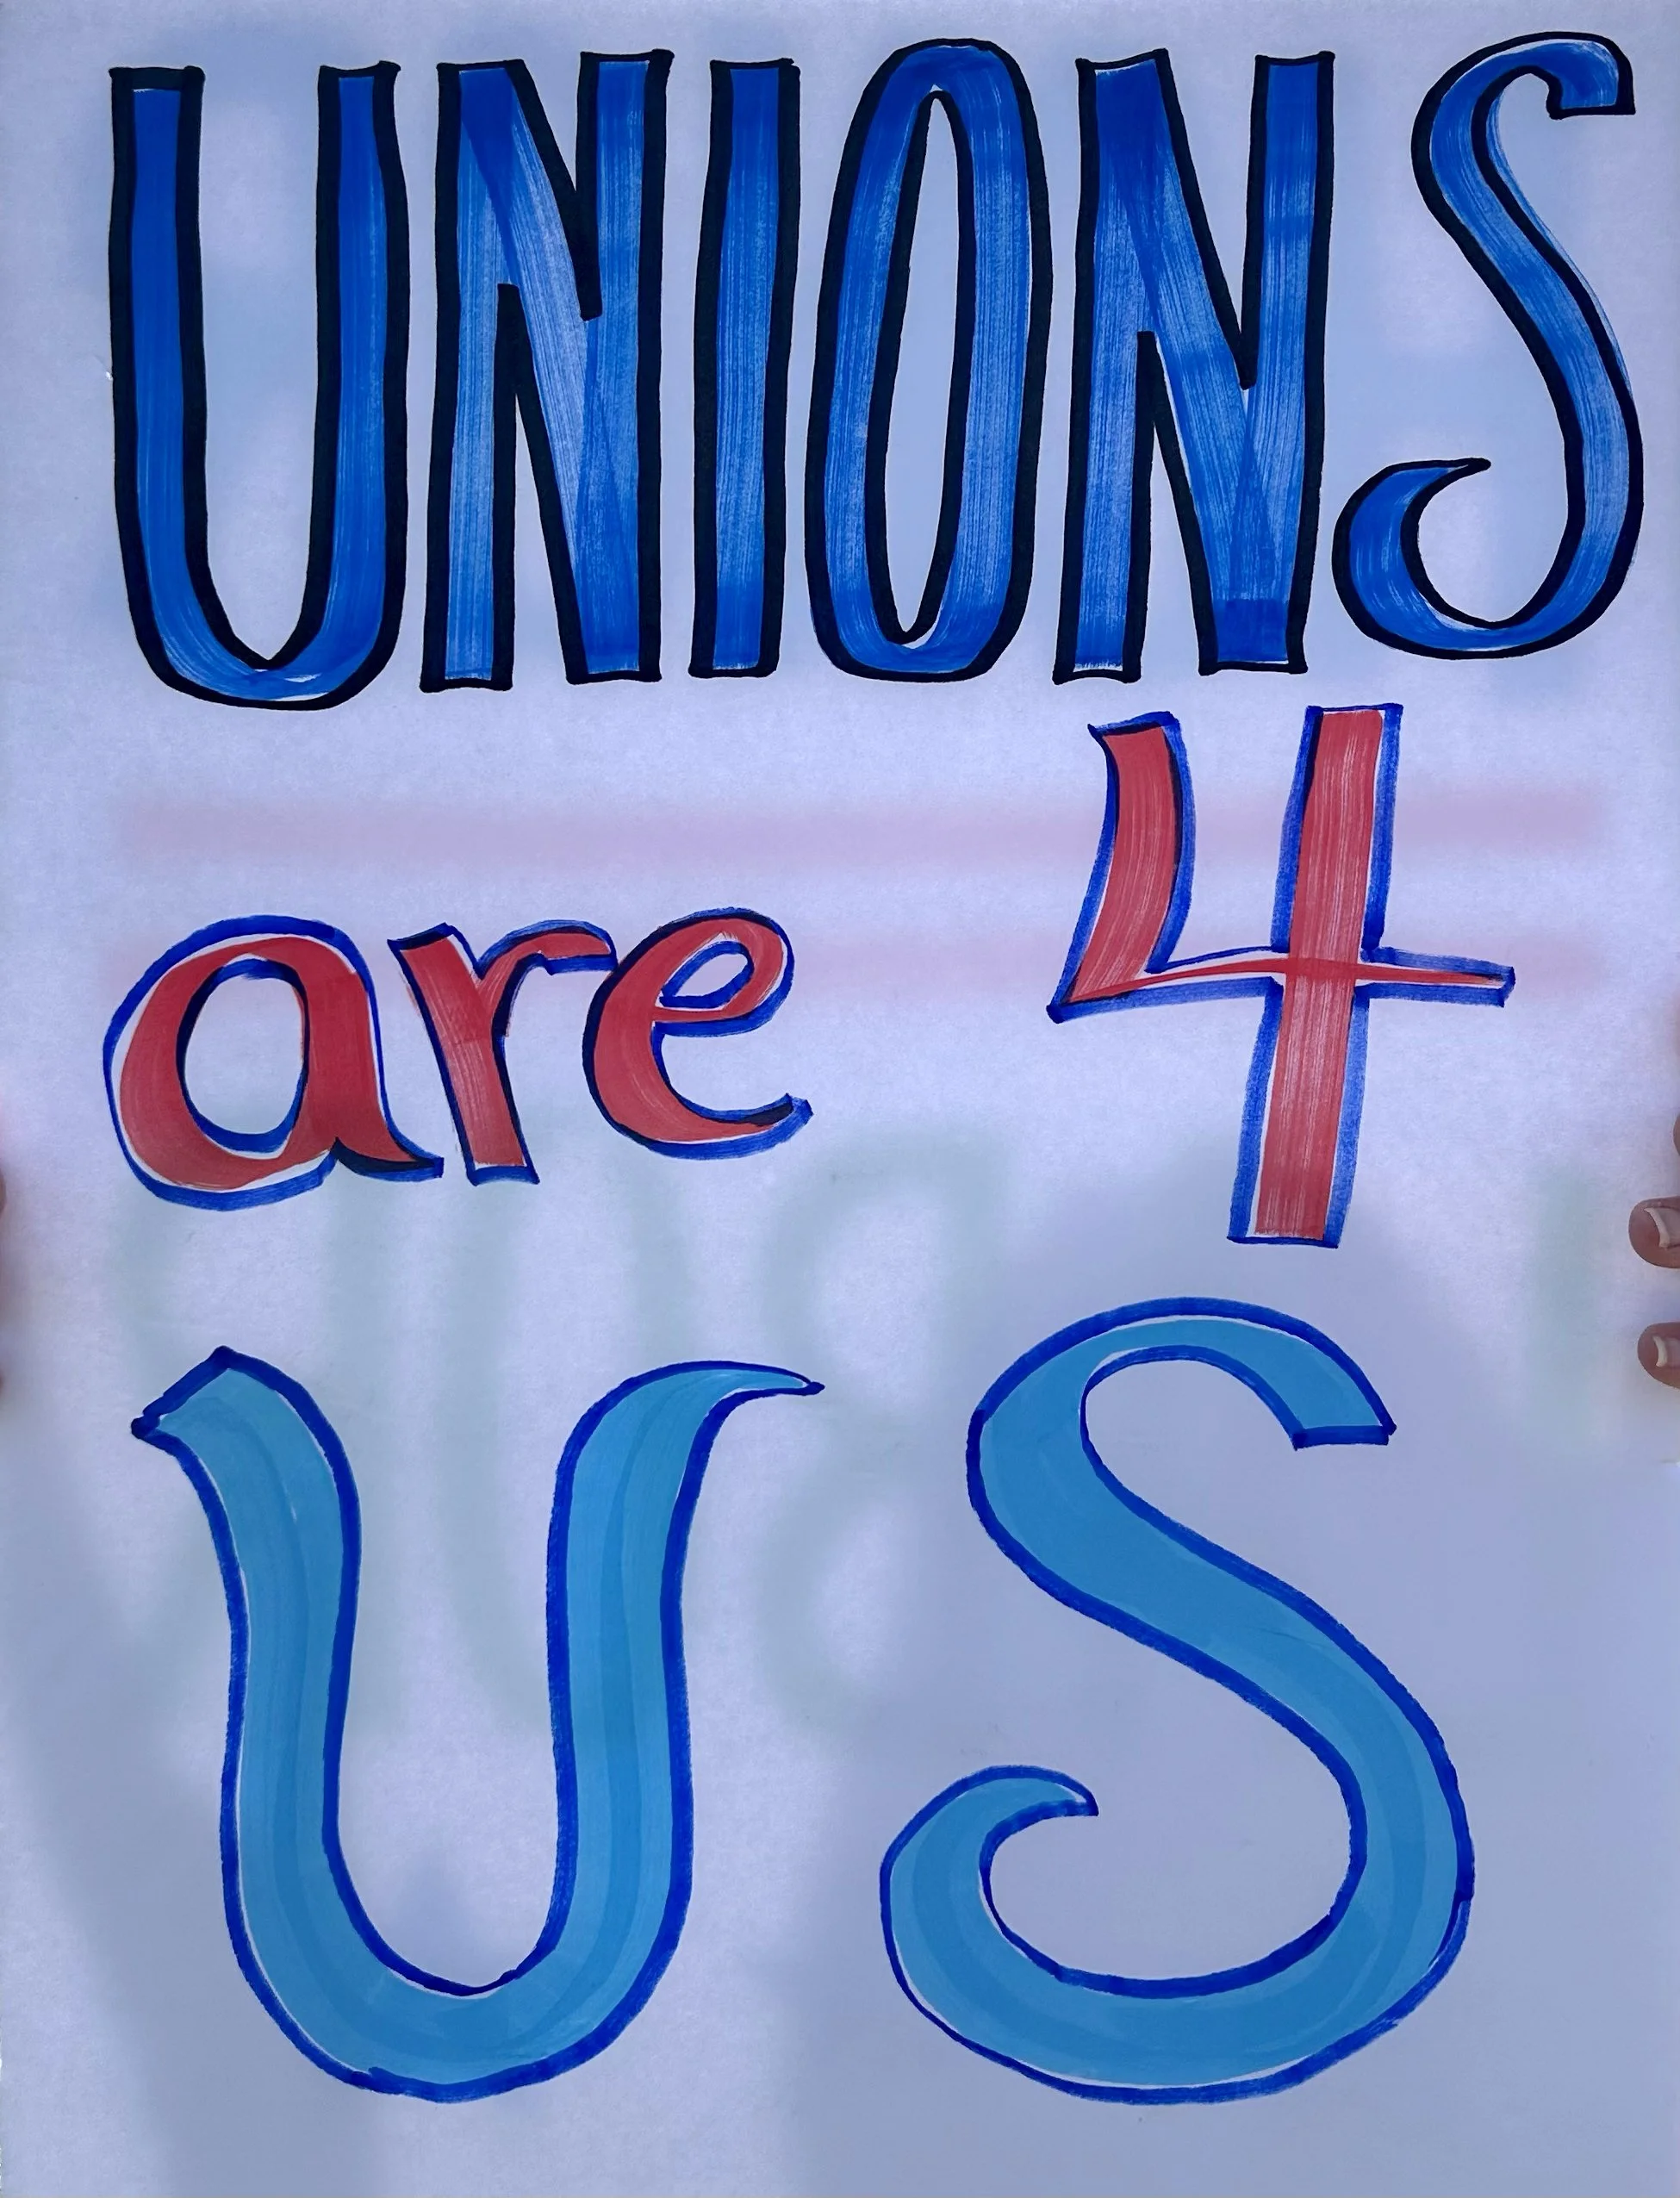 UNIONS
are 4
US